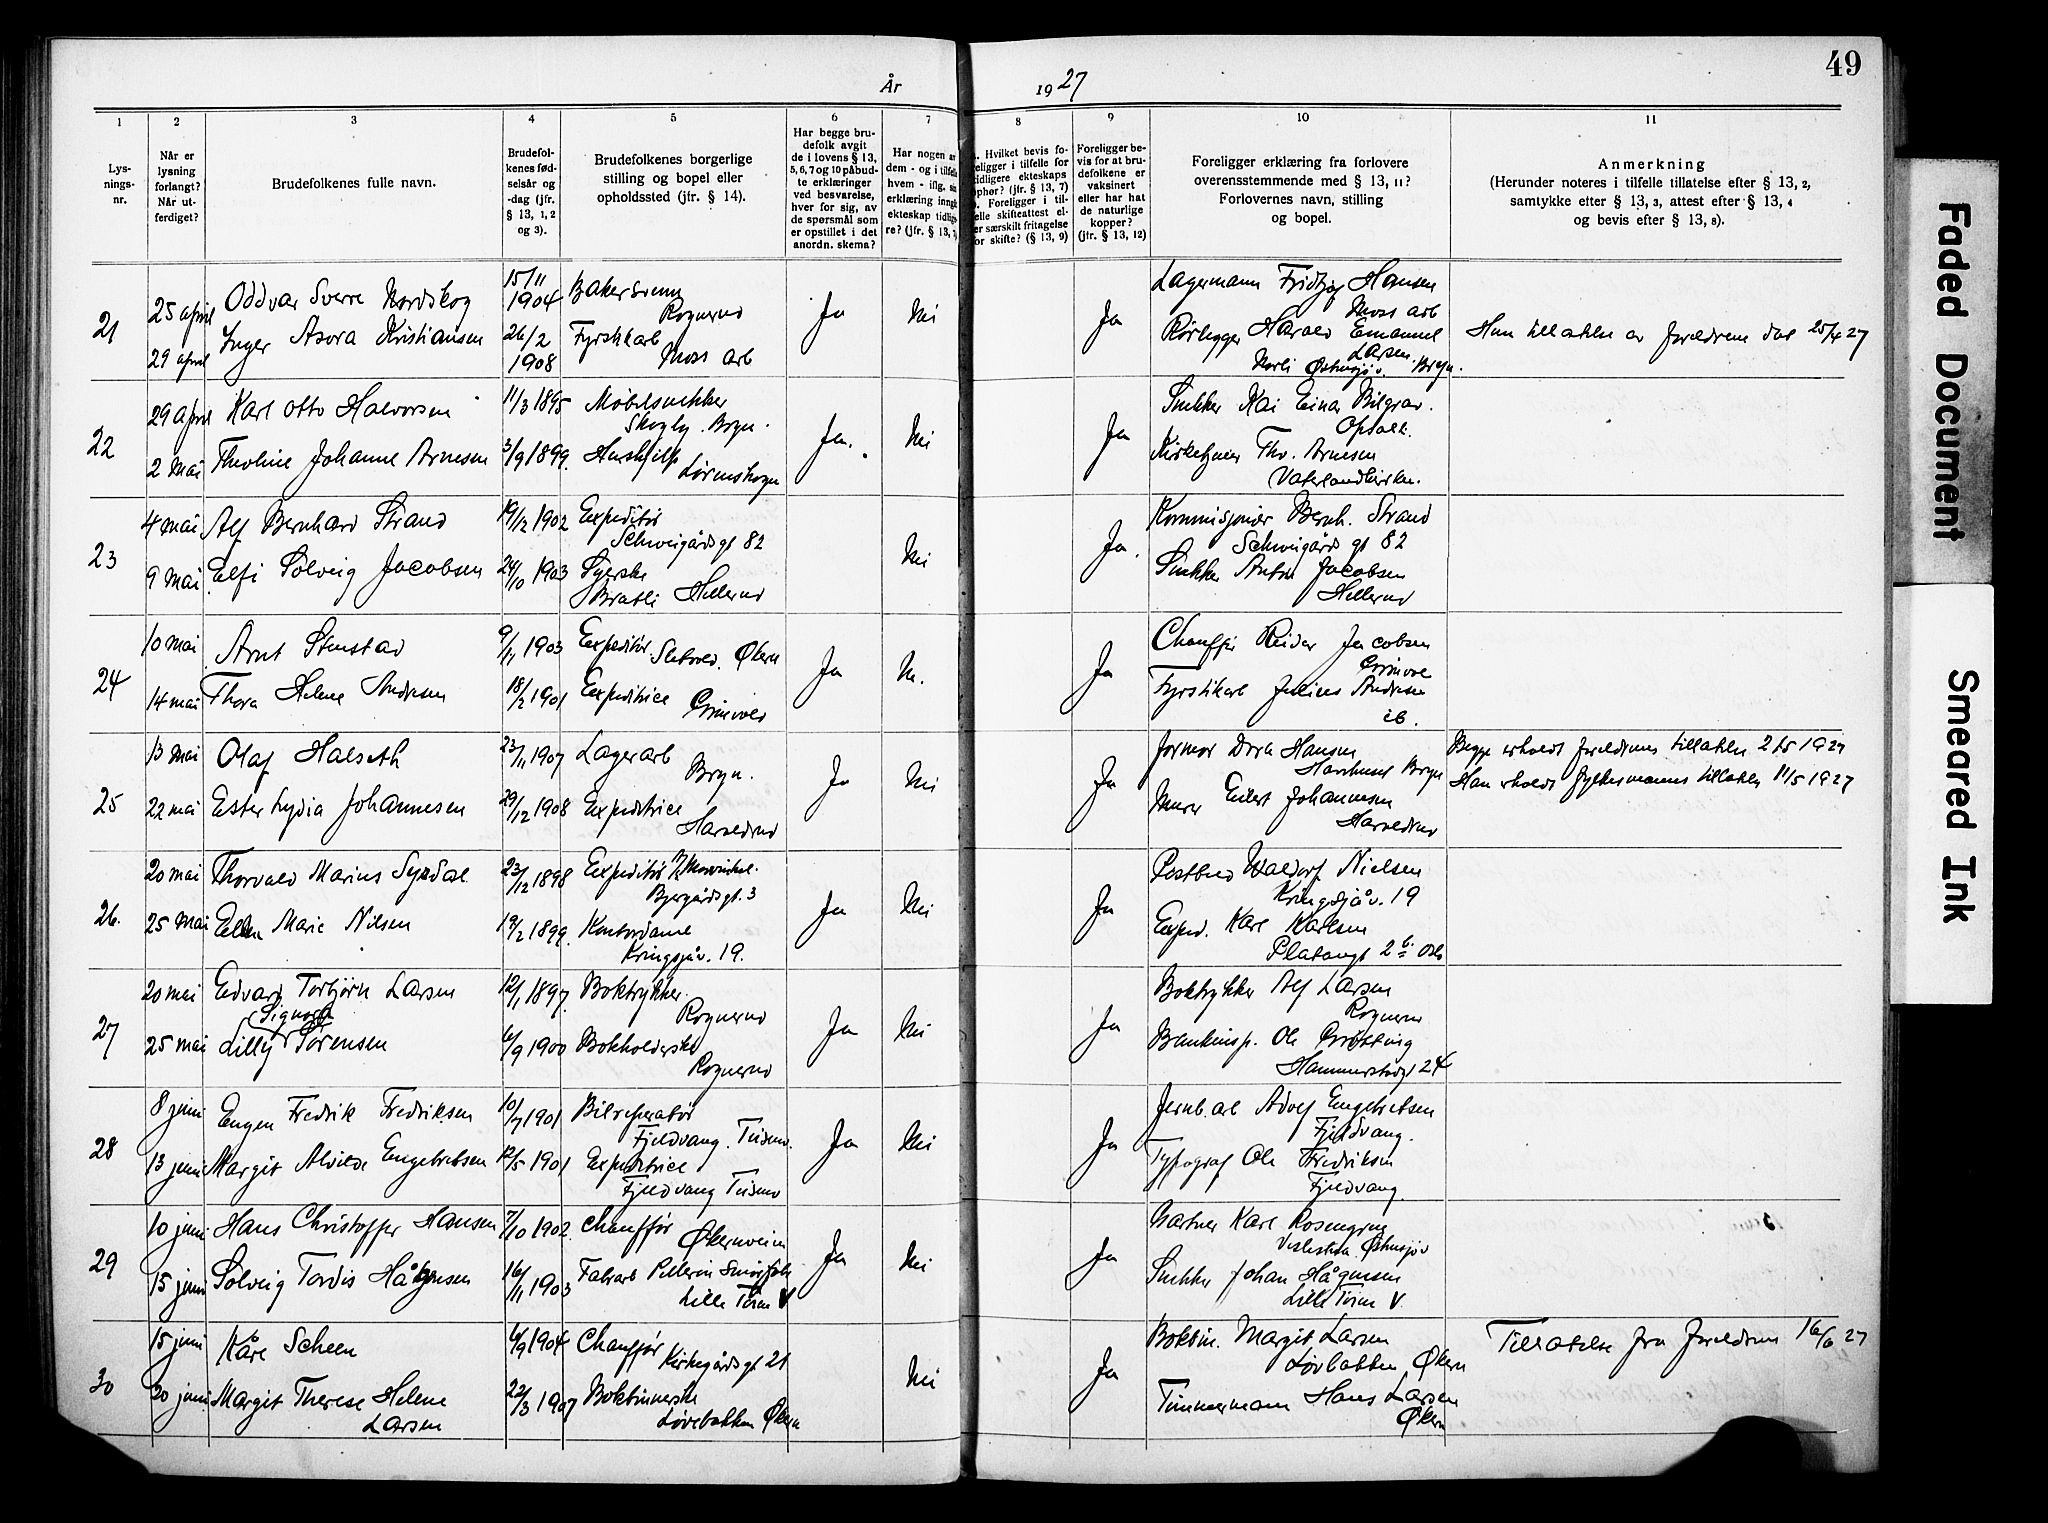 49
År 1927
1 2 3 4 5 6 7 8 9 10 11
Lys-
nings-
nr.
Når er
lysning
forlangt?
Når ut-
ferdiget?
Brudefolkenes fulle navn.
Brudefol-
kenes fød-
selsår og
-dag (jfr.
§ 13, 1, 2
og 3).
Brudefolkenes borgerlige
stilling og bopel eller
opholdssted (jfr. § 14).
Har begge bru-
defolk avgit
de i lovens § 13,
5, 6, 7 og 10 påbud-
te erklæringer
ved besvarelse,
hver for sig, av
de spørsmål som
er opstillet i det
anordn. skema?
Har nogen av
dem - og i tilfelle
hvem - iflg. sin
erklæring inngått
ekteskap tidlige-
re? (jfr. § 13,
Hvilket bevis fo-
religger i tilfelle for
tidligere ekteskaps
ophør? (jfr. § 13, 7)
Foreligger i til-
felle skifteattest el-
ler særskilt fritagelse
for skifte? (§ 13, 9)
Foreligger be-
vis for at bru-
defolkene er
vaksinert
eller har hat
de naturlige
kopper?
(jfr. § 13, 12)
Foreligger erklæring fra forlovere
overensstemmende med § 13, 11?
Forlovernes navn, stilling
og bopel.
Anmerkning
(Herunder noteres i tilfelle tillatelse efter § 13, 2,
samtykke efter § 13, 3, attest efter § 13, 4
og bevis efter § 13, 8).
21
25 april
29 april
Oddvar Sverre Nordskog
Inger Asora Kristiansen
15/11
1904
26/2
1908
Bakersvenn
Rognerud
Fyrstikarb
Moss arb
Ja
Nei
Ja
Lagermann Fridtjof Hansen
Moss arb
Rørlegger Harald Emanuel
Larsen.
Norli Østensjøv. Bryn.
Hun tillatelse av foreldrene dat 25/4 27
22
29 april
2 Mai
Karl Otto Halvorsen
Theoline Johanne Arnesen
11/3 1895
3/9 1899.
Møbelsnekker
Skogly. Bryn.
Hushjelp
Lørenskogen
Ja.
Nei
Ja
Snekker Kai Einar Bilgrav.
Opsall.
Kirketjener Thv. Arnesen
Vaterlandkirken.
23
4 mai
9 mai
Alf Bernhard Strand
Elfi Solveig Jacobsen
19/12 1902
24/10 1903
Expeditør
Schweigårdsgt 82
Syerske
Bratli Hellerud
Nei
Ja.
Kommisjonær Bernh. Strand
Schweigårds gt 82
Snekker Anton Jacobsen
Hellerud
24
10 mai
14 mai
Arnt Stenstad
Thora Helene Andresen
9/11 1903
18/2 1901
Expeditør
Økern
Expeditrice
Ja
N.
Ja
Chauffør Reidar Jacobsen
Fyrstikarb Julius Andresen
ib.
25
13 mai
22 mai
Olaf Halseth
Ester Lydia Johannesen
23/11 1907
29/12 1908
Lagerarb
Bryn.
Expeditrice
Haraldrud
Ja
Nei
Ja
Jormor Dora Hansen
Bryn
Murer Eilert Johannesen
Haraldrud
Begge erholdt foreldrenes tillatelse 2/5 1927
Han erholdt fylkesmannens tillatelse 11/5 1927
26.
20 mai
25 mai
Thorvald Marius Syrdal
Ellen Marie Nilsen
23/12 1898
19/2 1899.
Expeditør
Bjergårdsgt. 3
Kontordame
Kringsjåv. 19.
Ja
Nei
Ja
Postbud Waldorf Nielsen
Kringsjåv. 19
Exped. Karl Karlsen
Platougt 2 b. Oslo
27
20 mai
25 mai
Edvard Torbjørn Larsen
(Signora
Lilly Sørensen
12/1 1897
6/9 1900
Boktrykker.
Rognerud
Bokholderske
Rognerud
Ja
Nei
Ja
Boktrykker Alf Larsen
Rognerud
Bankinsp. Ole Grøtting
Hammerstadgt 24
28
8 juni
13 juni
Eugen Fredrik Fredriksen
Margit Alvilde Engebretsen
10/7 1901
12/5 1901
Bilreparatør
Fjeldvang. Teisen.
Expeditrice
Fjeldvang Teisen
Ja
Nei
Ja
Jernb. arb Adolf Engebretsen
Fjeldvang.
Typograf Ole Fredriksen
Fjeldvang.
29
10 juni
15 juni
Hans Christoffer Hansen
Solveig Tordis Hågensen
7/10 1902.
16/11 1903
Chauffør
Økernveien
Fabrarb Pellerin Smørfabr
Lille Tøien V
Ja
Nei
Ja
Gartner Karl Rosengren
Østensjøv
Snekker Johan Hågensen
Lille Tøien V.
30
15 juni
20 juni
Kåre Scheen
Margit Therese Helene
Larsen
6/9 1904
22/3 1907
Chauffør
Kirkegårdsgt 21
Bokbinnerske
Løvebakken Økern
Nei
Ja
Bokbin. Margit Larsen
Løvbakken Økern
Tømmermann Hans Larsen
Økern
Tillatelse fra foreldrene 16/6 27
Faded Document
Smeared Ink